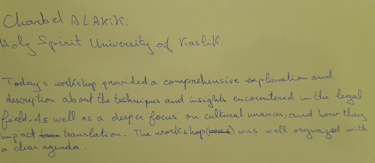 Charbel ALAKIKI:
Holy Spirit University of Kaslik.
Today's workshop provided a comprehensive explanation and
description about the techniques and insights encountered in the legal
field. As well as a deeper focus on cultural nuances, and how they
impact translation. The workshop was well organized with
a clear agenda.